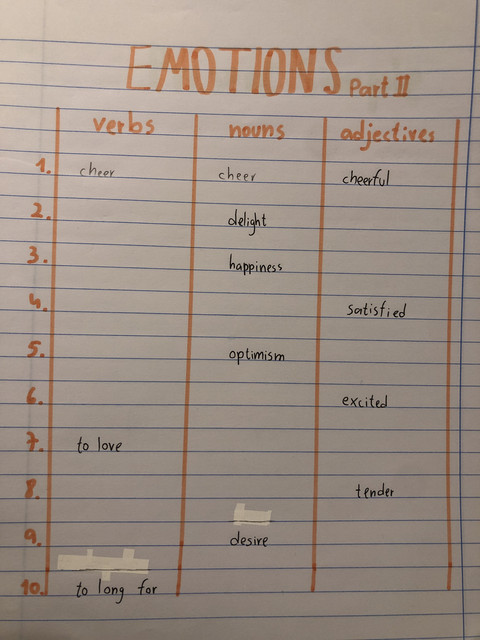 EMOTIONS Part II
verbs nouns adjectives
1. cheer cheer cheerful
2. delight
3. happiness
4. satisfied
5. optimism
6. excited
7. to love
8. tender
9. desire
10. to long for